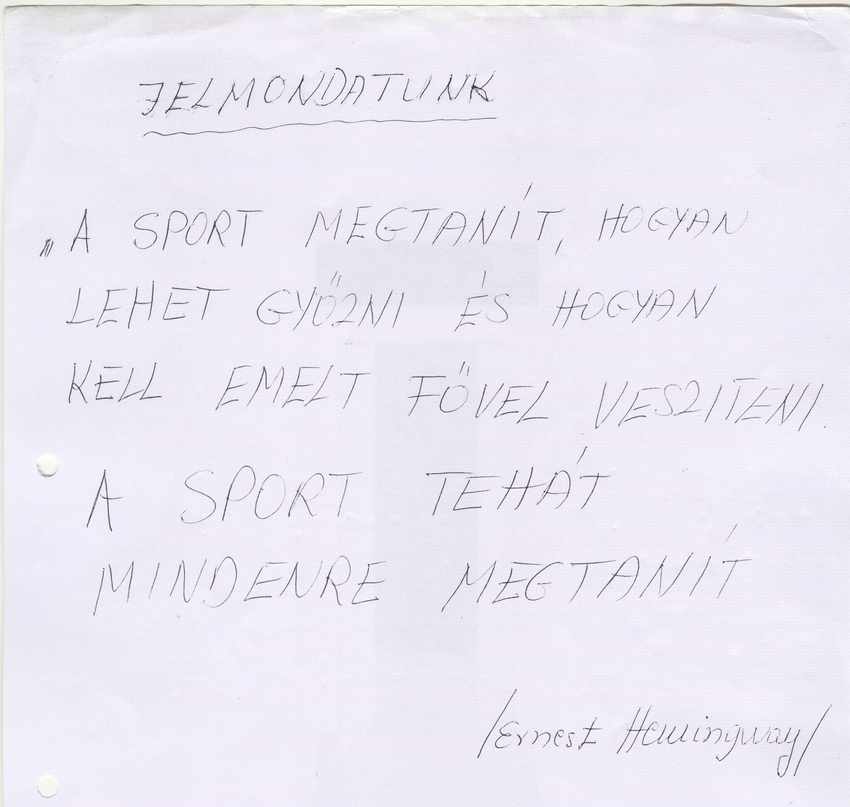 JELMONDATUNK
„A SPORT MEGTANÍT, HOGYAN
LEHET GYŐZNI ÉS HOGYAN
KELL EMELT FŐVEL VESZITENI.
A SPORT TEHÁT
MINDENRE MEGTANÍT
/Ernest Hemingway/